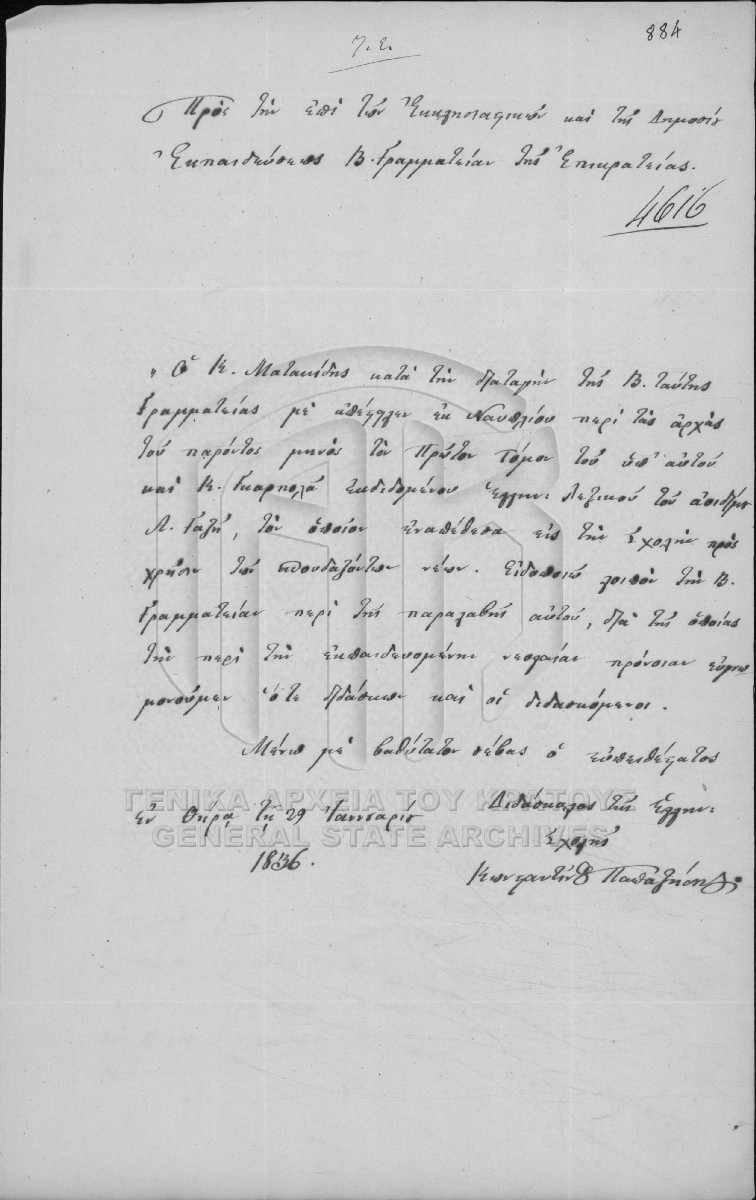 884
7. ε.
Πρὸς τὴν ἐπὶ τῶν Ἐκκλησιαστικῶν καὶ τῆς Δημοσίου
Ἐκπαιδεύσεως Β. Γραμματείαν τῆς Ἐπικρατείας.
4616
Ὁ Κ. Ματακίδης κατὰ τὴν διαταγὴν τῆς Β. ταύτης
Γραμματείας μὲ ἀπέστειλεν ἐκ Ναυπλίου περὶ τὰς ἀρχὰς
τοῦ παρόντος μηνὸς τὸν Πρῶτον τόμον τοῦ ὑπ' αὐτοῦ
καὶ Κ. Γκαρπολᾶ ἐκδιδομένου Ἑλλην: Λεξικοῦ τοῦ ἀοιδίμου
Α. Γαζῆ, τὸν ὁποῖον ἐναπέθεσα εἰς τὴν Σχολὴν πρὸς
χρῆσιν τῶν σπουδαζόντων νέων. Εἰδοποιῶ λοιπὸν τὴν Β.
Γραμματείαν περὶ τῆς παραλαβῆς αὐτοῦ, διὰ τῆς ὁποίας
τὴν περὶ τὴν ἐκπαιδευομένην νεολαίαν πρόνοιαν εὐγνω
μονοῦμεν ὅ τε διδάσκων καὶ οἱ διδασκόμενοι.
Μένω μὲ βαθύτατον σέβας ὁ εὐπειθέστατος
Διδάσκαλος τῆς Ἑλλην:
Σχολῆς
ἐν Θήρᾳ τῇ 29 Ἰαννουαρίου
1836.
Κωνσταντῖνος
ΓΕΝΙΚΑ ΑΡΧΕΙΑ ΤΟΥ ΚΡΑΤΟΥΣ
GENERAL STATE ARCHIVES